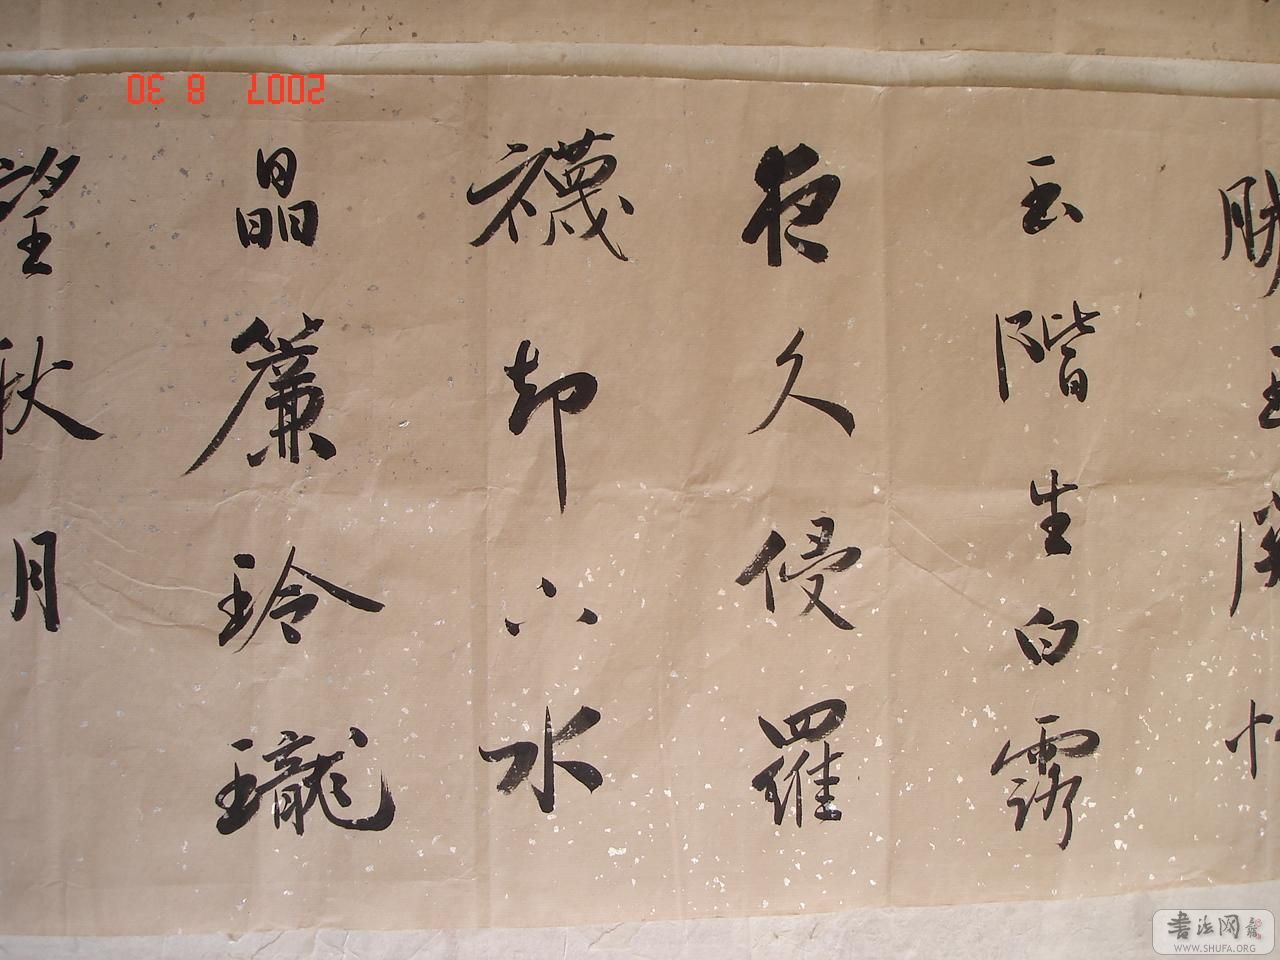 玉階生白露
夜久侵羅
襪却下水
晶簾玲瓏
望秋月
2007 8 30
書法网
WWW.SHUFA.ORG